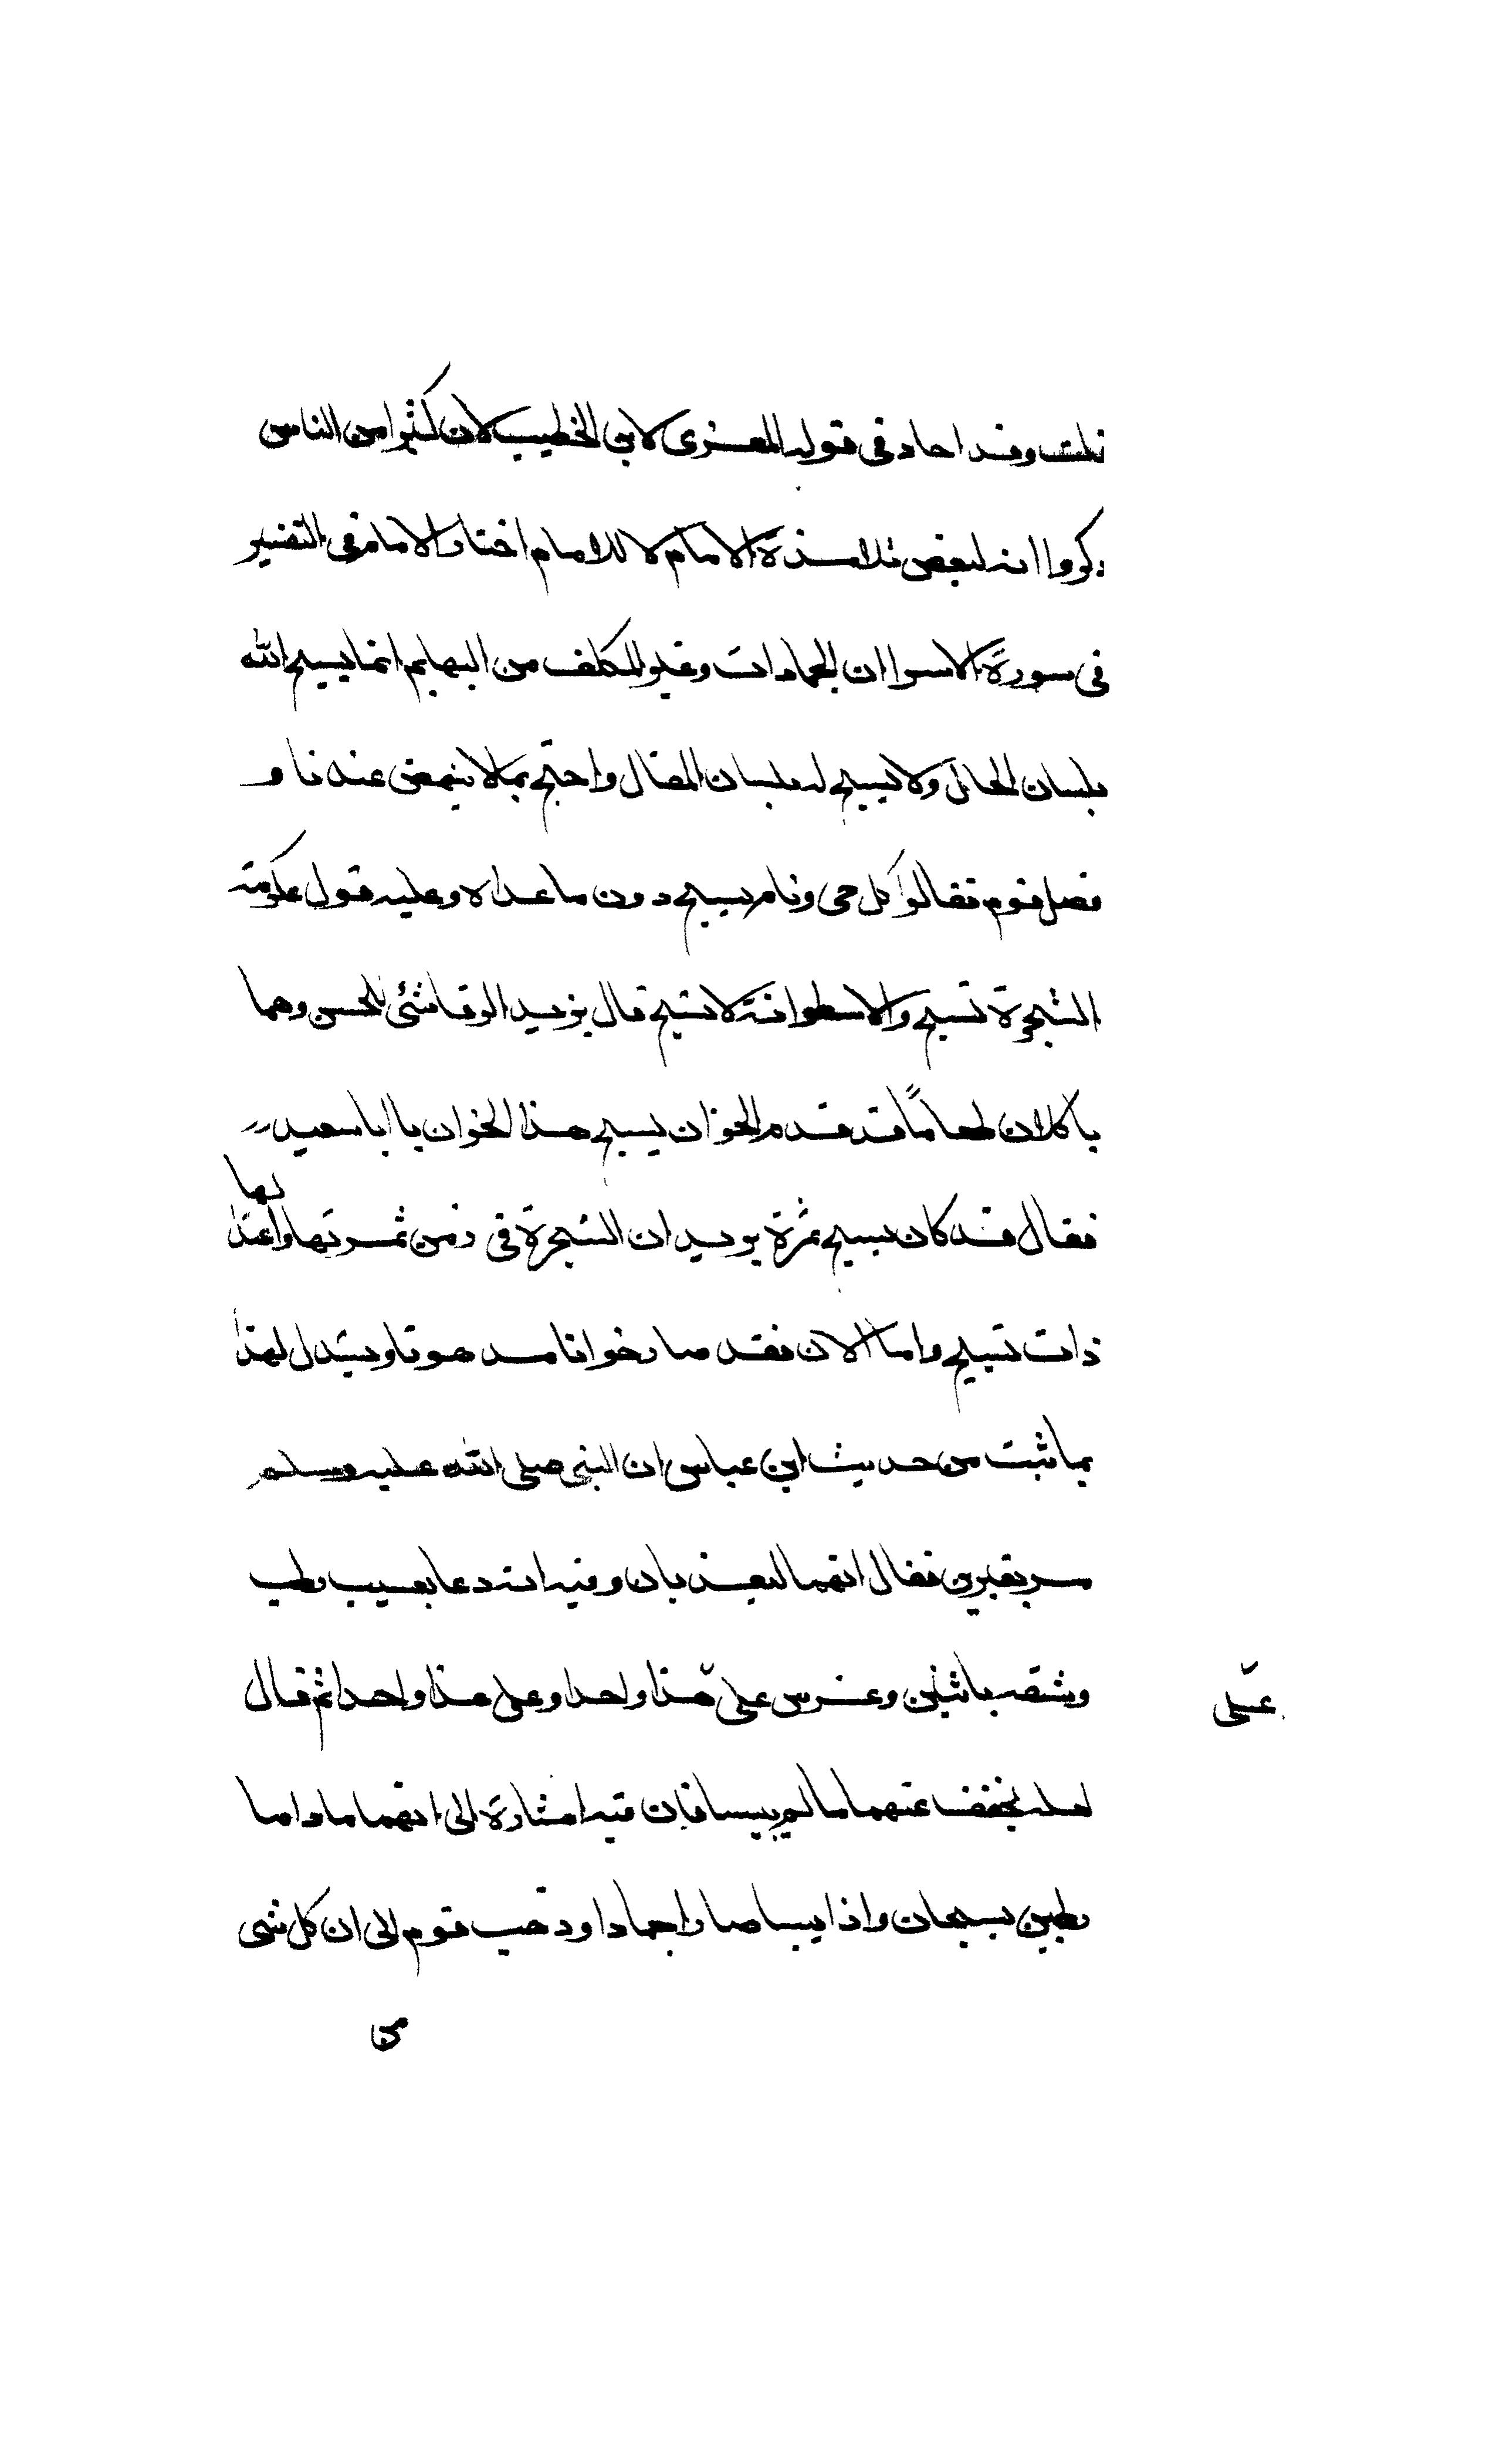 قلت وقد اجاد في قوله المعزى لابن الخطيب لان كثيرا من الناس
ذكروا انه لبعض تلامذة الامام لا للامام اختار الامام في التفسير
في سورة الاسرا ان الجمادات وغير المكلف من البهايم انما يسبح الله
بلسان الحال ولا يسبح له بلسان المقال واحتج بما لا ينهض عندنا و
فصل قوم فقالوا كل حي ونام يسبح دون ما عداه وعليه قول عكرمة
الشجرة تسبح والاسطوانة لا تسبح قال يزيد الرقاشي للحسن وهما
ياكلان طعاماً قد قدم الخوان يسبح هذا الخوان يا ابا سعيد
فقال قد كان يسبح ثمرة يريد ان الشجرة في زمن ثمرتها واعتدا
لها
ذات تسبيح واما الان فقد صار خوانا مدهونا ويستدل لهذا
بما ثبت من حديث ابن عباس ان النبي صلى الله عليه وسلم
مر بقبرين فقال انهما ليعذبان وفيه انه دعا بعسيب رطب
وشقه باثنين وغرس على هذا واحدا وعلى هذا واحدا ثم قال
على
لعله يخفف عنهما ما لم ييبسا فان فيه اشارة الى انهما ما داما
رطبين يسبحان واذا يبسا صارا جمادا وذهب قوم الى ان كل شي
من